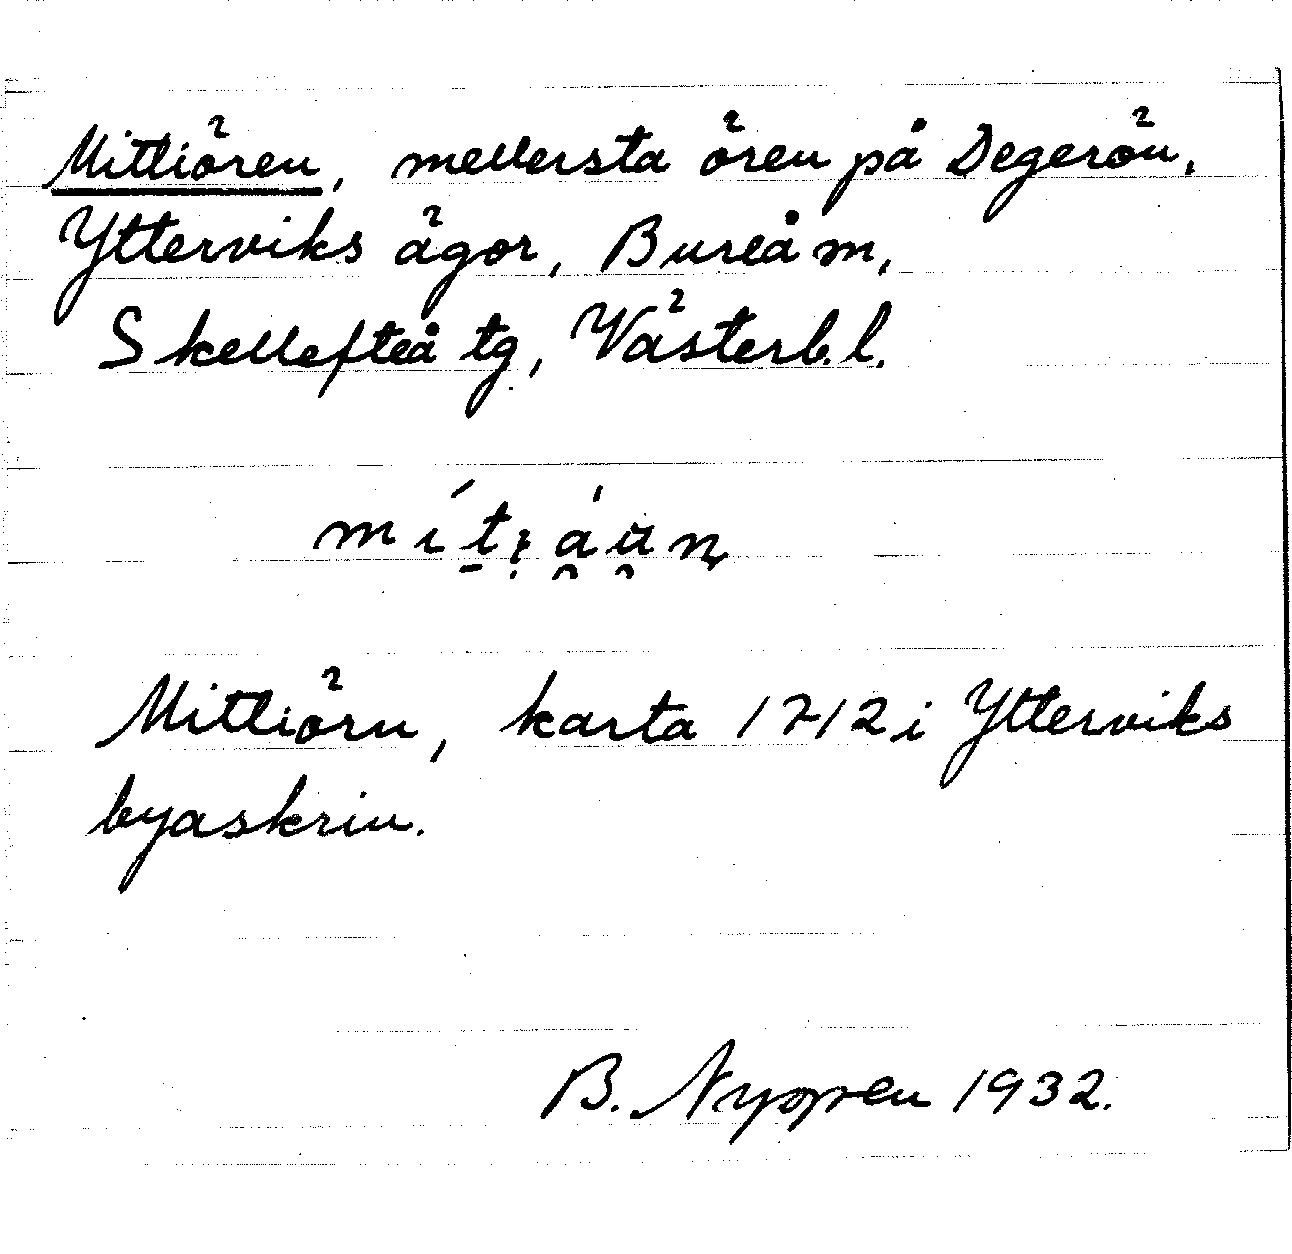 Mittiören, mellersta ören på Degerön,
Ytterviks ägor, Bureå m,
Skellefteå tg, Västerb. l.
Mittiörn, karta 1712 i Ytterviks
byaskrin.
B. Nyppen 1932.